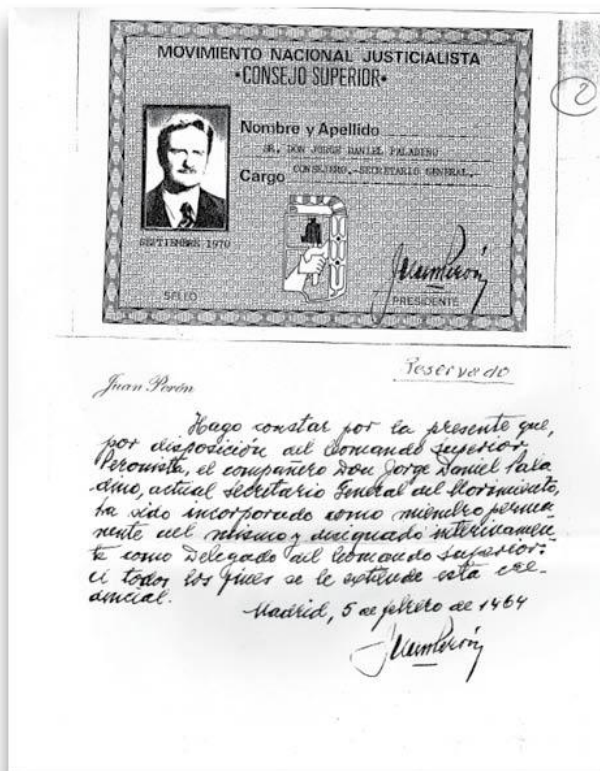 MOVIMIENTO NACIONAL JUSTICIALISTA
•CONSEJO SUPERIOR•
2
Nombre y Apellido
SR. DON JORGE DANIEL PALADINO
Cargo CONSEJERO.-SECRETARIO GENERAL.
SEPTIEMBRE 1970
Juan Perón
SELLO
PRESIDENTE
Reservado
Juan Perón
Hago constar por la presente que,
por disposición del Comando Superior
Peronista, el compañero Don Jorge Daniel Pala
dino, actual Secretario General del Movimiento,
ha sido incorporado como miembro perma
nente del mismo y designado interinamen
te como Delegado del Comando Superior:
a todos los fines se le extiende esta cre-
dencial.
Madrid, 5 de febrero de 1969
Juan Perón